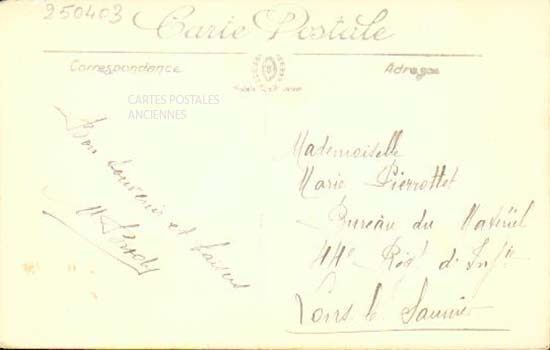 250403
Carte Postale
Correspondance
Adresse
CARTES POSTALES
ANCIENNES
Bon souvenir et baisers
Mademoiselle
Marie Pierrottet
Bureau du Matériel
44e Régt d'Infie
Lons le Saunier